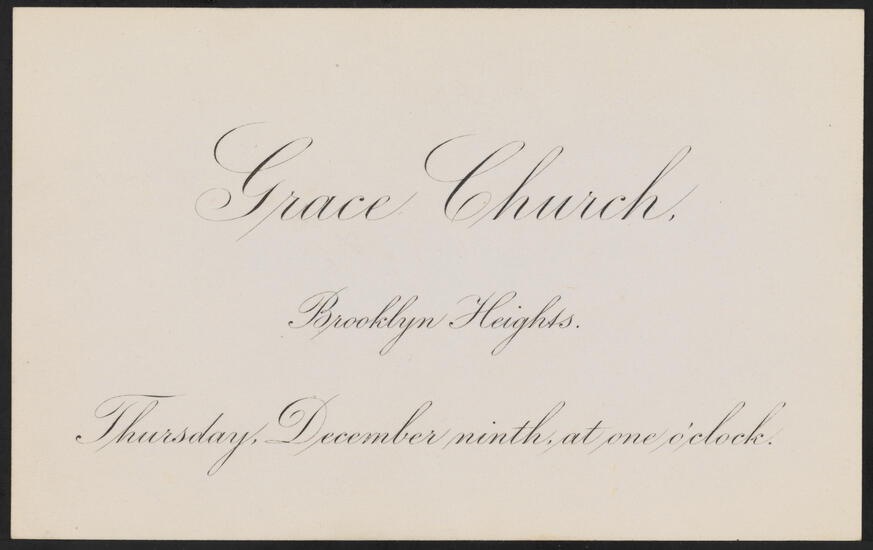 Grace Church,
Brooklyn Heights.
Thursday, December ninth, at one o'clock.